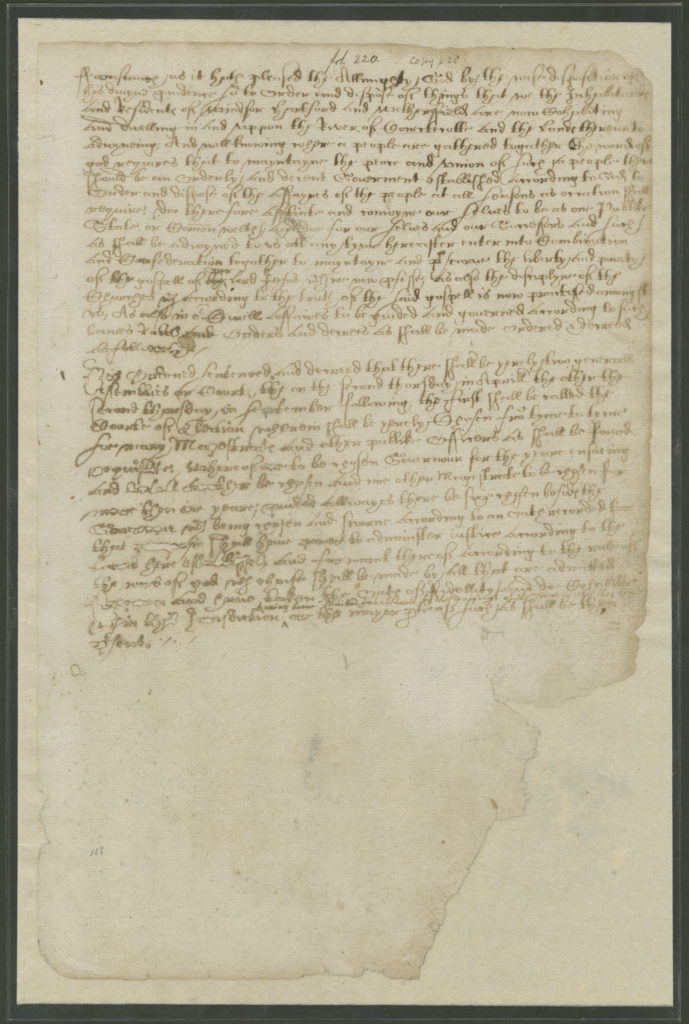 fol. 220. Copy p 28
Forasmuch as it hath pleased the Allmighty God by the wise disposition of
his diuyne pruidence so to Order and dispose of things that we the Inhabitants
and Residents of Windsor Harteford and Wethersfield are now Cohabiting
and dwelling in and vppon the River of Conectecotte and the Lands thereunto
Adioyneing; And well knowing where a people are gathered together the word of
god requires that to mayntayne the peace and vnion of such a people there
should be an orderly and decent Gouerment established according to God, to
Order and dispose of the affayres of the people at all seasons as occation shall
require; doe therefore assotiate and conioyne our selues to be as one Publike
State or Comon welth; and doe for our selues and our Successors and such
as shall be adioyned to vs att any tyme hereafter enter into Combination
and Confederation together to mayntayne and prsearue the liberty and purity
of the gospell of our Lord Jesus wch we now prfesse, as also the disciplyne of the
Churches wch according to the truth of the said gospell is now practised amongst
vs; As also in or Ciuell Affaires to be guided and gouerned according to such
Lawes Rules Orders and decrees as shall be made ordered & decreed
as followeth
It is Ordered sentenced and decreed that there shall be yerely two generall
Assemblies or Courts, the on the second thursday in Aprill, the other the
second thursday in September following, the first shall be called the
Courte of Election wherein shall be yerely Chosen fro tyme to tyme
soe many Magestrats and other publike Officers as shall be found
requisitte; whereof one to be chosen Gouernour for the yeare ensueing
and vntill another be chosen and noe other Magestrate to be chosen for
more then one yeare; pruided allwayes there be sixe chosen besids the
Gouernour wch being chosen and sworne according to an Oath recorded for
that shall haue power to administer iustice according to the
Lawes here established and for want thereof according to the rule of
the word of god wch choise shall be made by all that are admitted
freemen and haue taken the Oath of Fidellity and doe Cohabitte
wthin this Jurisdiction, or the mayor prte of such as shall be then
prsent.
103